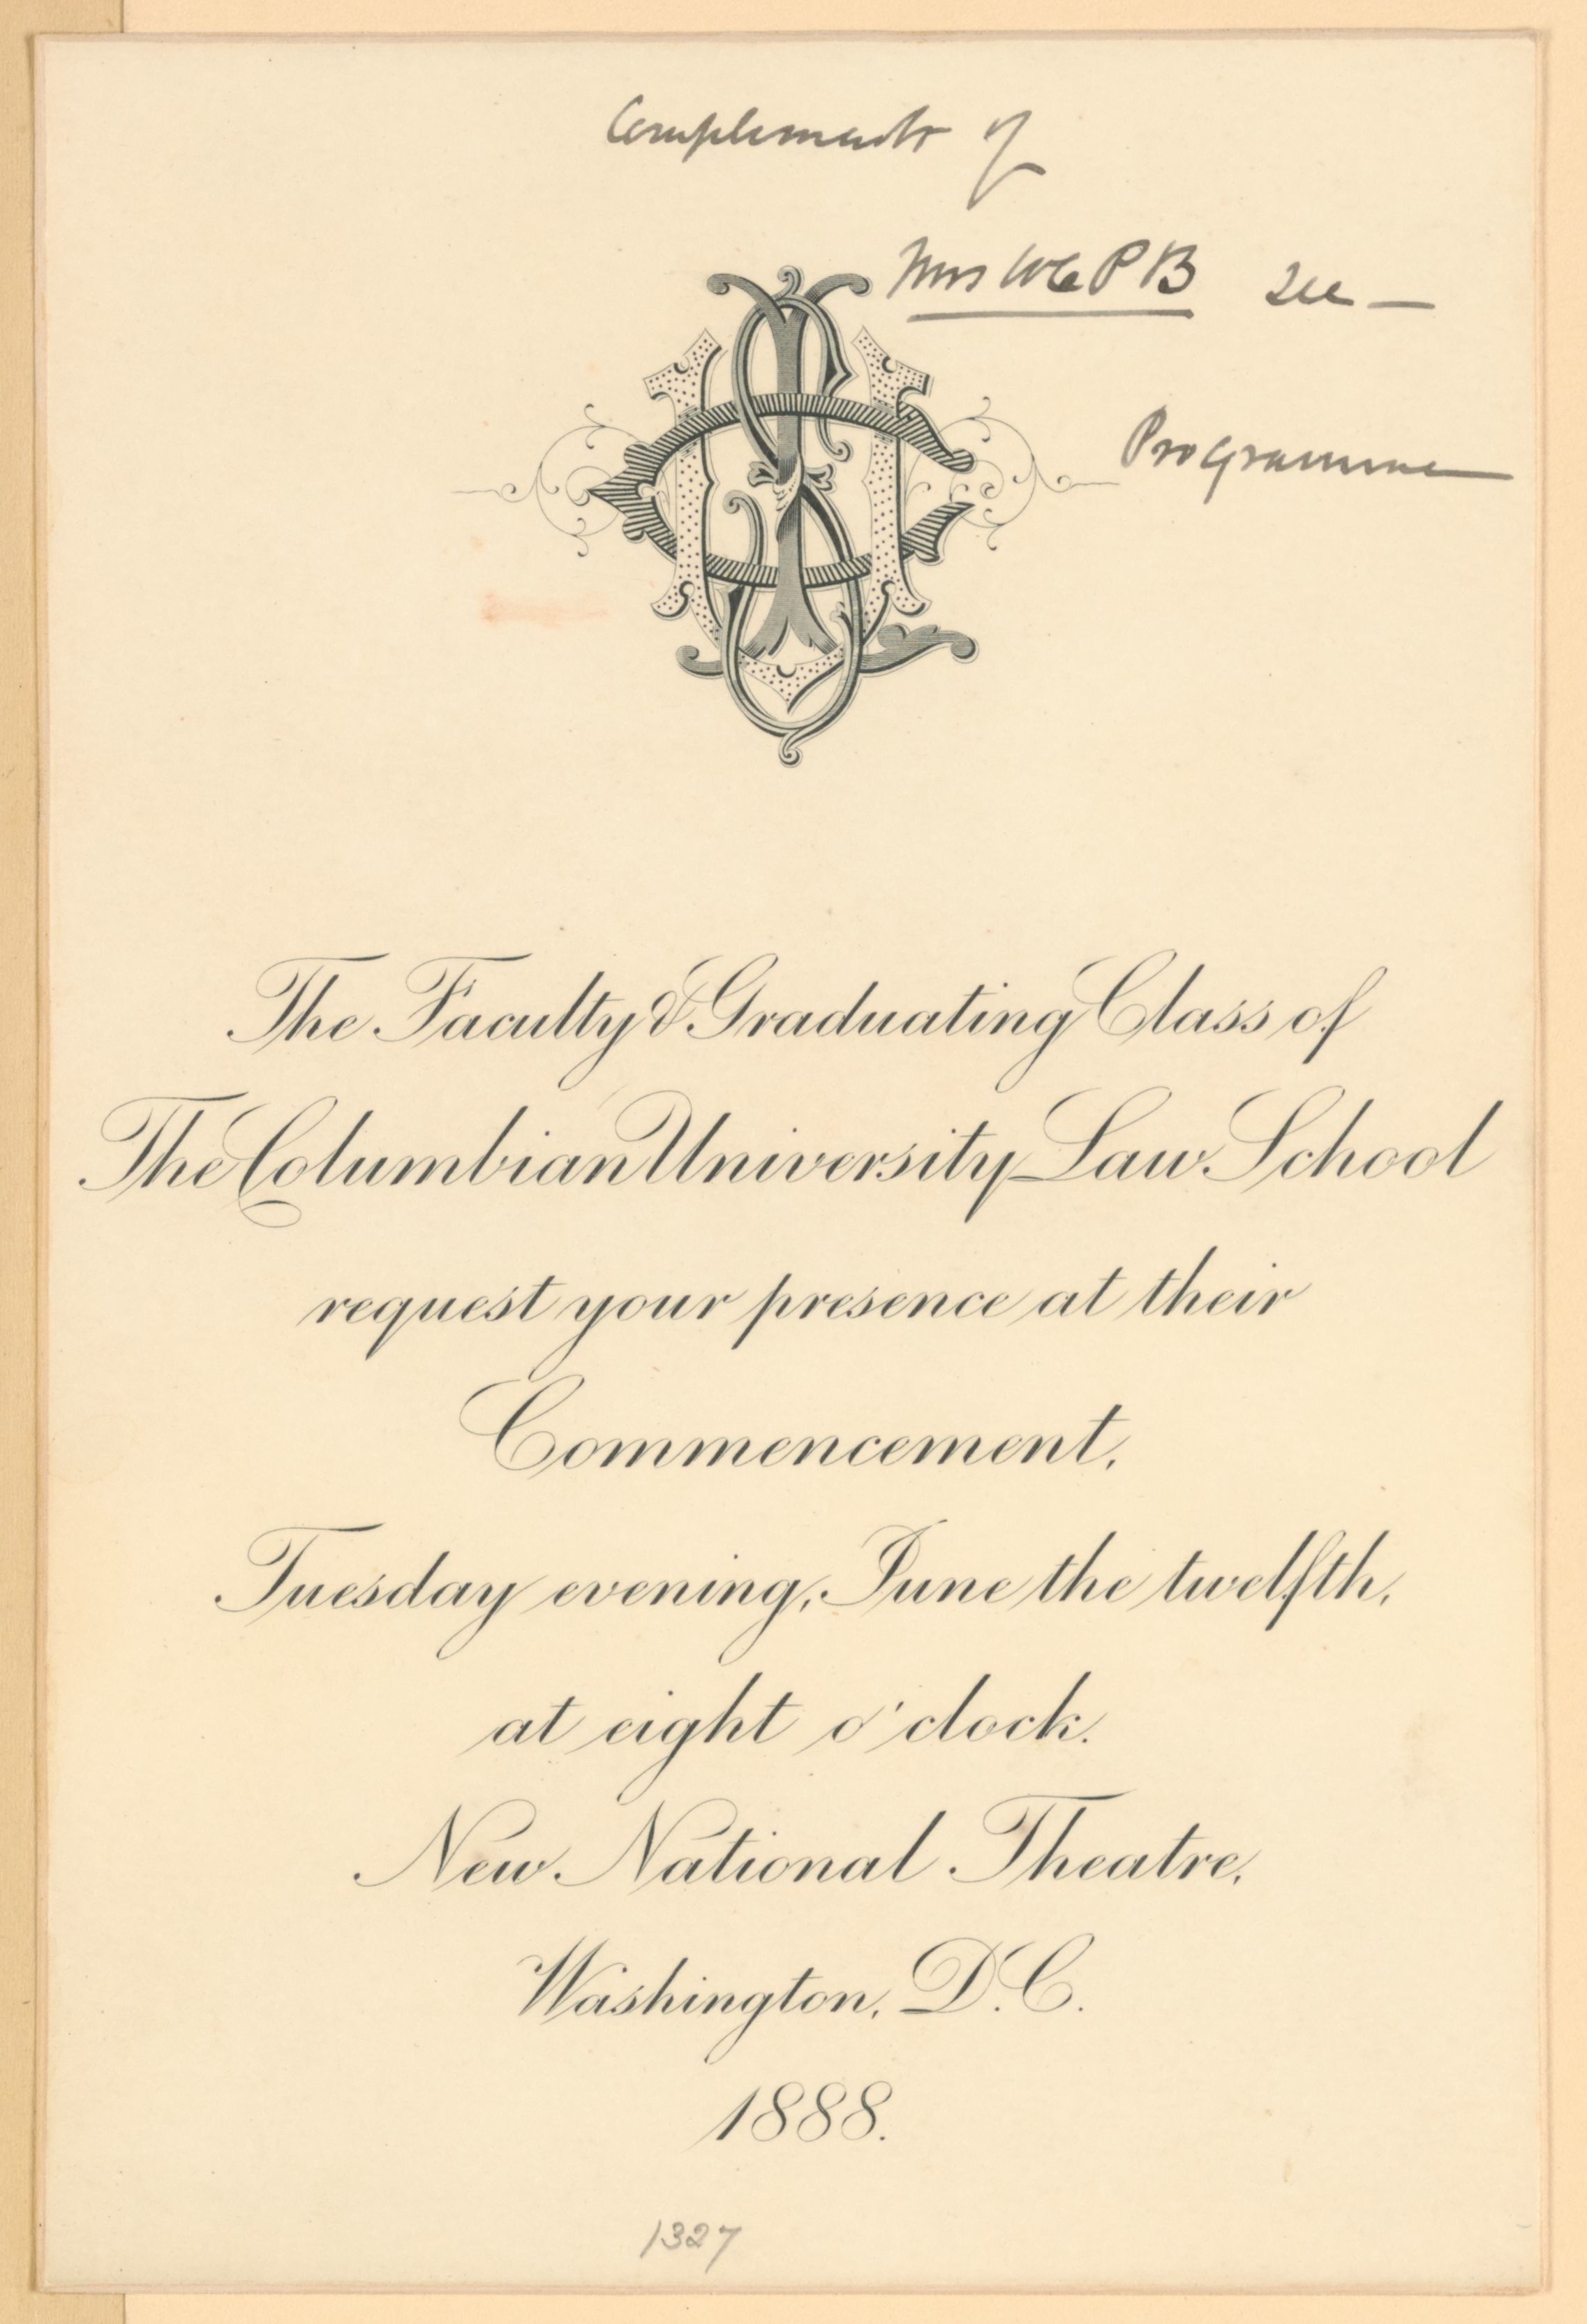 Complements of
Mrs W C P B see —
Programme
The Faculty & Graduating Class of
The Columbian University Law School
request your presence at their
Commencement,
Tuesday evening, June the twelfth,
at eight o'clock.
New National Theatre,
Washington, D.C.
1888.
1327